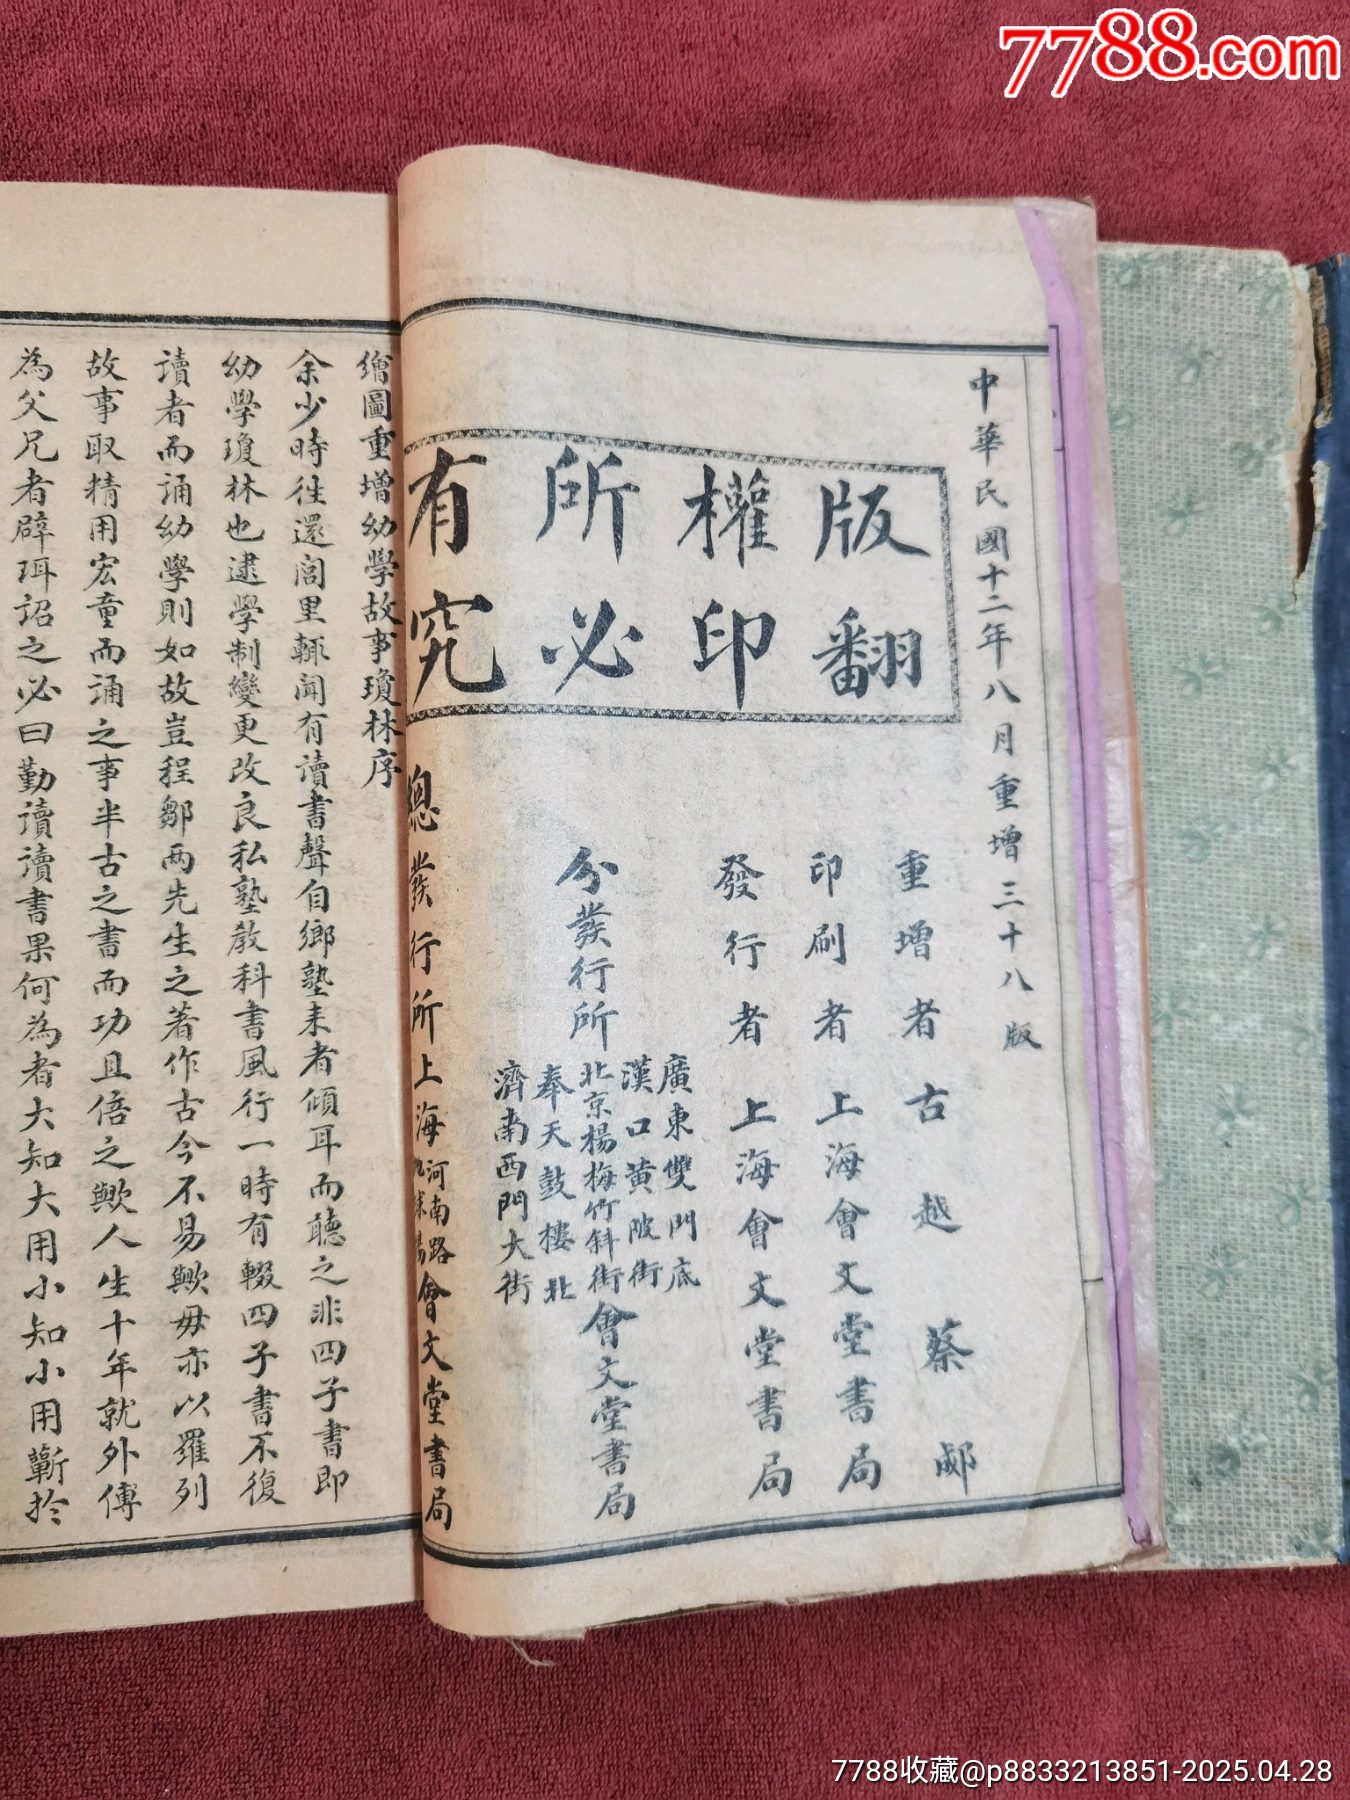 7788.com
中華民國十二年八月重增三十八版
版權所有
翻印必究
重增者古越蔡郕
印刷者上海會文堂書局
發行者上海會文堂書局
分發行所
廣東雙門底
漢口黃陂街
北京楊梅竹斜街
奉天鼓樓北
濟南西門大街
會文堂書局
總發行所上海
河南路
會文堂書局
繪圖重增幼學故事瓊林序
余少時徃還閭里輒聞有讀書聲自鄉塾来者傾耳而聽之非四子書即
幼學瓊林也逮學制變更改良私塾教科書風行一時有輟四子書不復
讀者而誦幼學則如故豈程鄒兩先生之著作古今不易歟毋亦以羅列
故事取精用宏童而誦之事半古之書而功且倍之歟人生十年就外傅
為父兄者辟珥詔之必曰勤讀讀書果何為者大知大用小知小用蘄於
7788收藏@p8833213851-2025.04.28